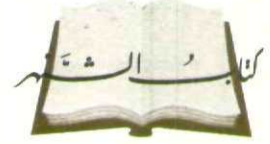 كتابُ الشَّهر